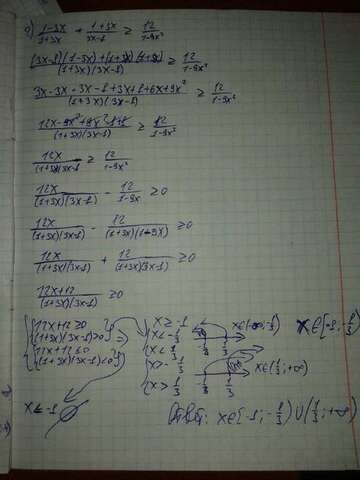 2) (1-3x)/(1+3x) + (1+3x)/(3x-1) ≥ 12/(1-9x²)
((3x-1)(1-3x)+(1+3x)(1+3x))/((1+3x)(3x-1)) ≥ 12/(1-9x²)
/((1+3x)(3x-1)) ≥ 12/(1-9x²)
/((1+3x)(3x-1)) ≥ 12/(1-9x²)
12x/((1+3x)(3x-1)) ≥ 12/(1-9x²)
12x/((1+3x)(3x-1)) - 12/(1-9x) ≥ 0
12x/((1+3x)(3x-1)) - 12/((1+3x)(1-9x)) ≥ 0
12x/((1+3x)(3x-1)) + 12/((1+3x)(3x-1)) ≥ 0
(12x+12)/((1+3x)(3x-1)) ≥ 0
{12x+12≥0
{(1+3x)(3x-1)>0
{12x+12≤0
{(1+3x)(3x-1)<0
x ≤ -1
{x ≥ -1
{x < -1/3
{x < 1/3
{x > -1/3
{x > 1/3
-1/3 1/3
x∈[-1; -1/3)
-1/3 1/3 x∈(1/3; +∞)
Ответ: x∈[-1; -1/3)∪(1/3; +∞)